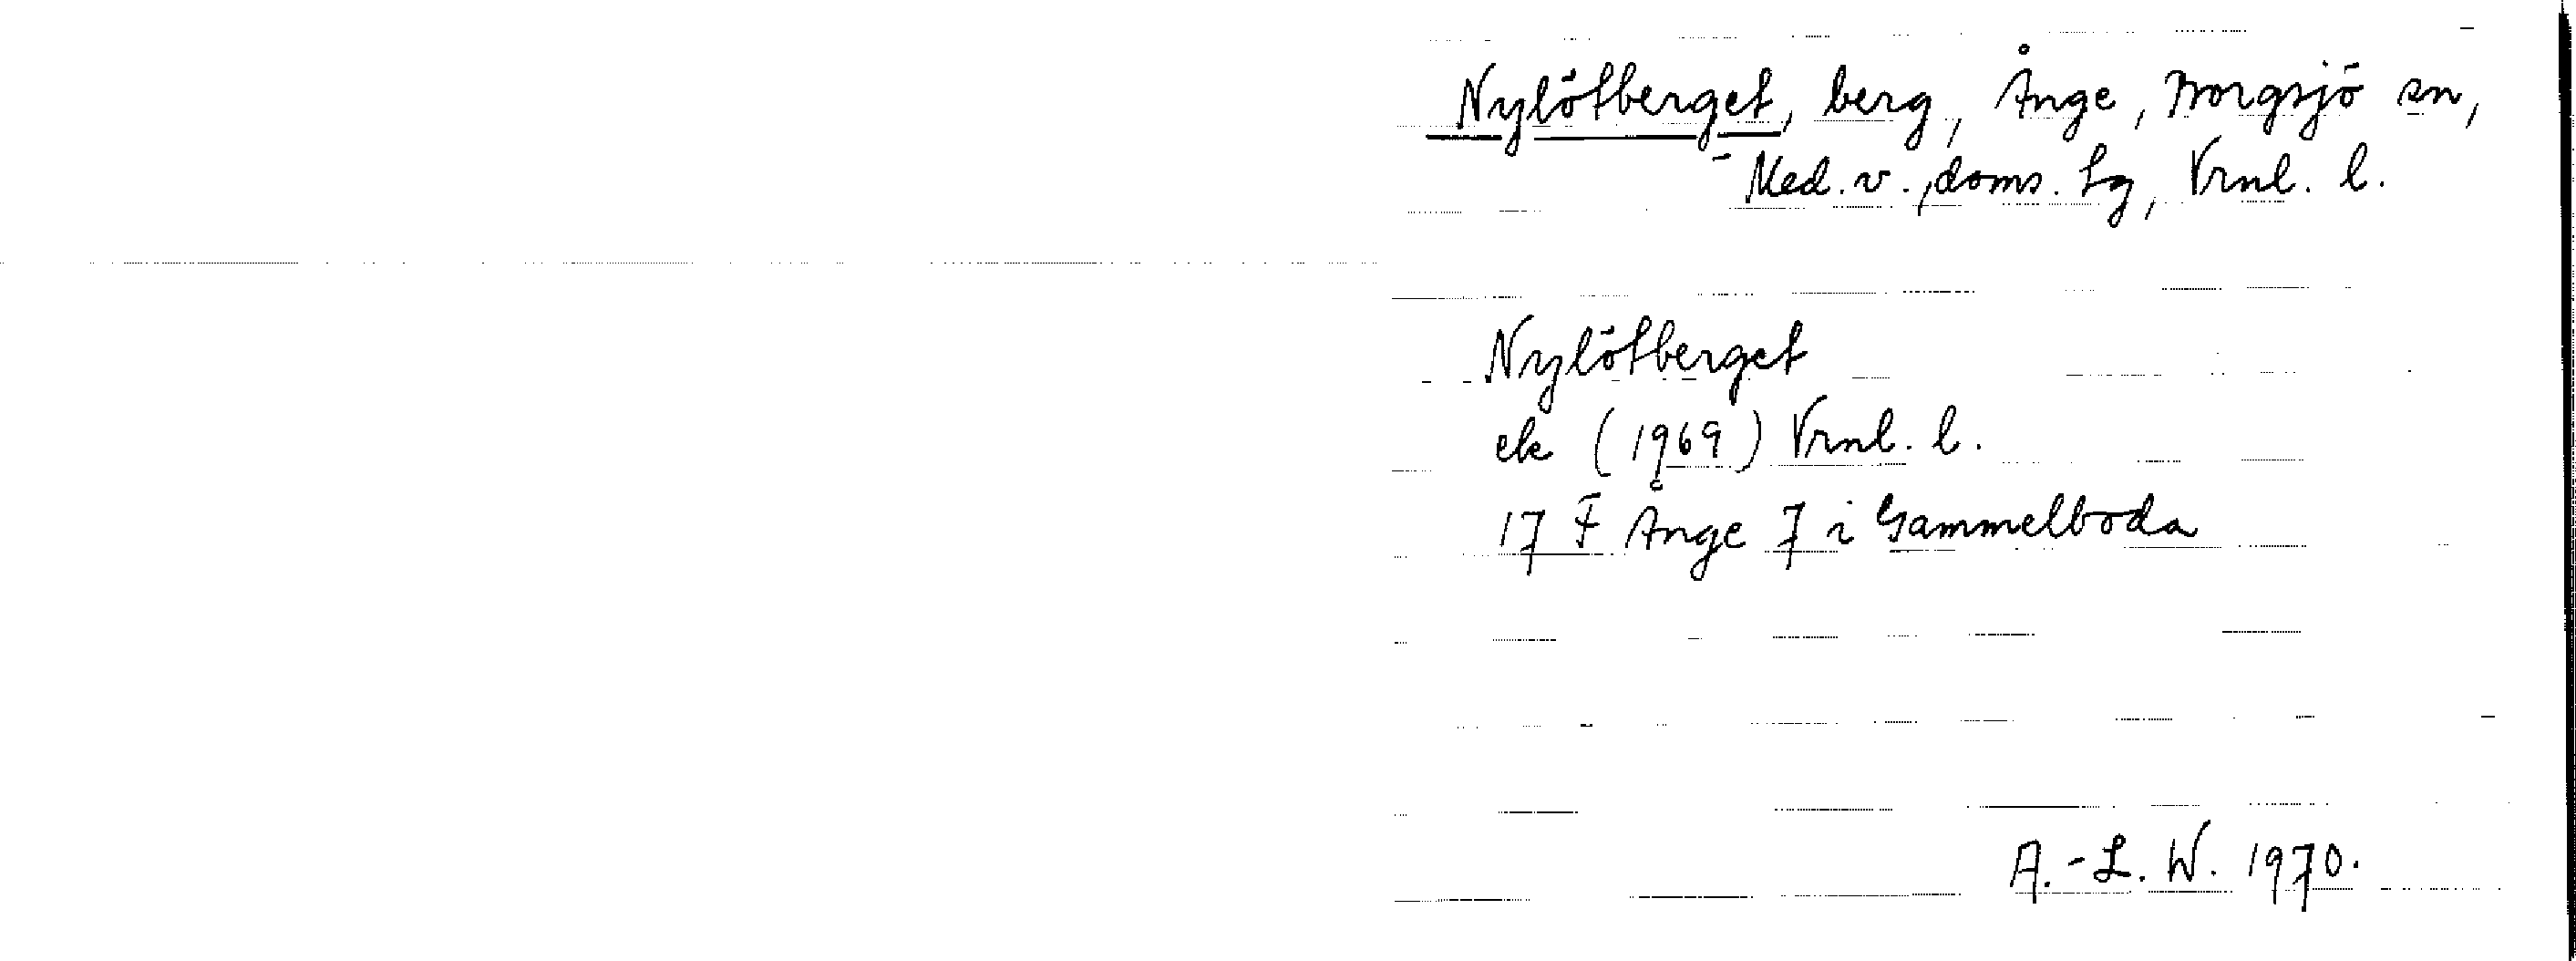 Nylötberget, berg, Ånge, Borgsjö sn,
Med. v., doms. lg, Vrnl. l.
Nylötberget
ek (1969) Vrnl. l.
17 F Ånge 7 i Gammelboda
A.-L. W. 1970.